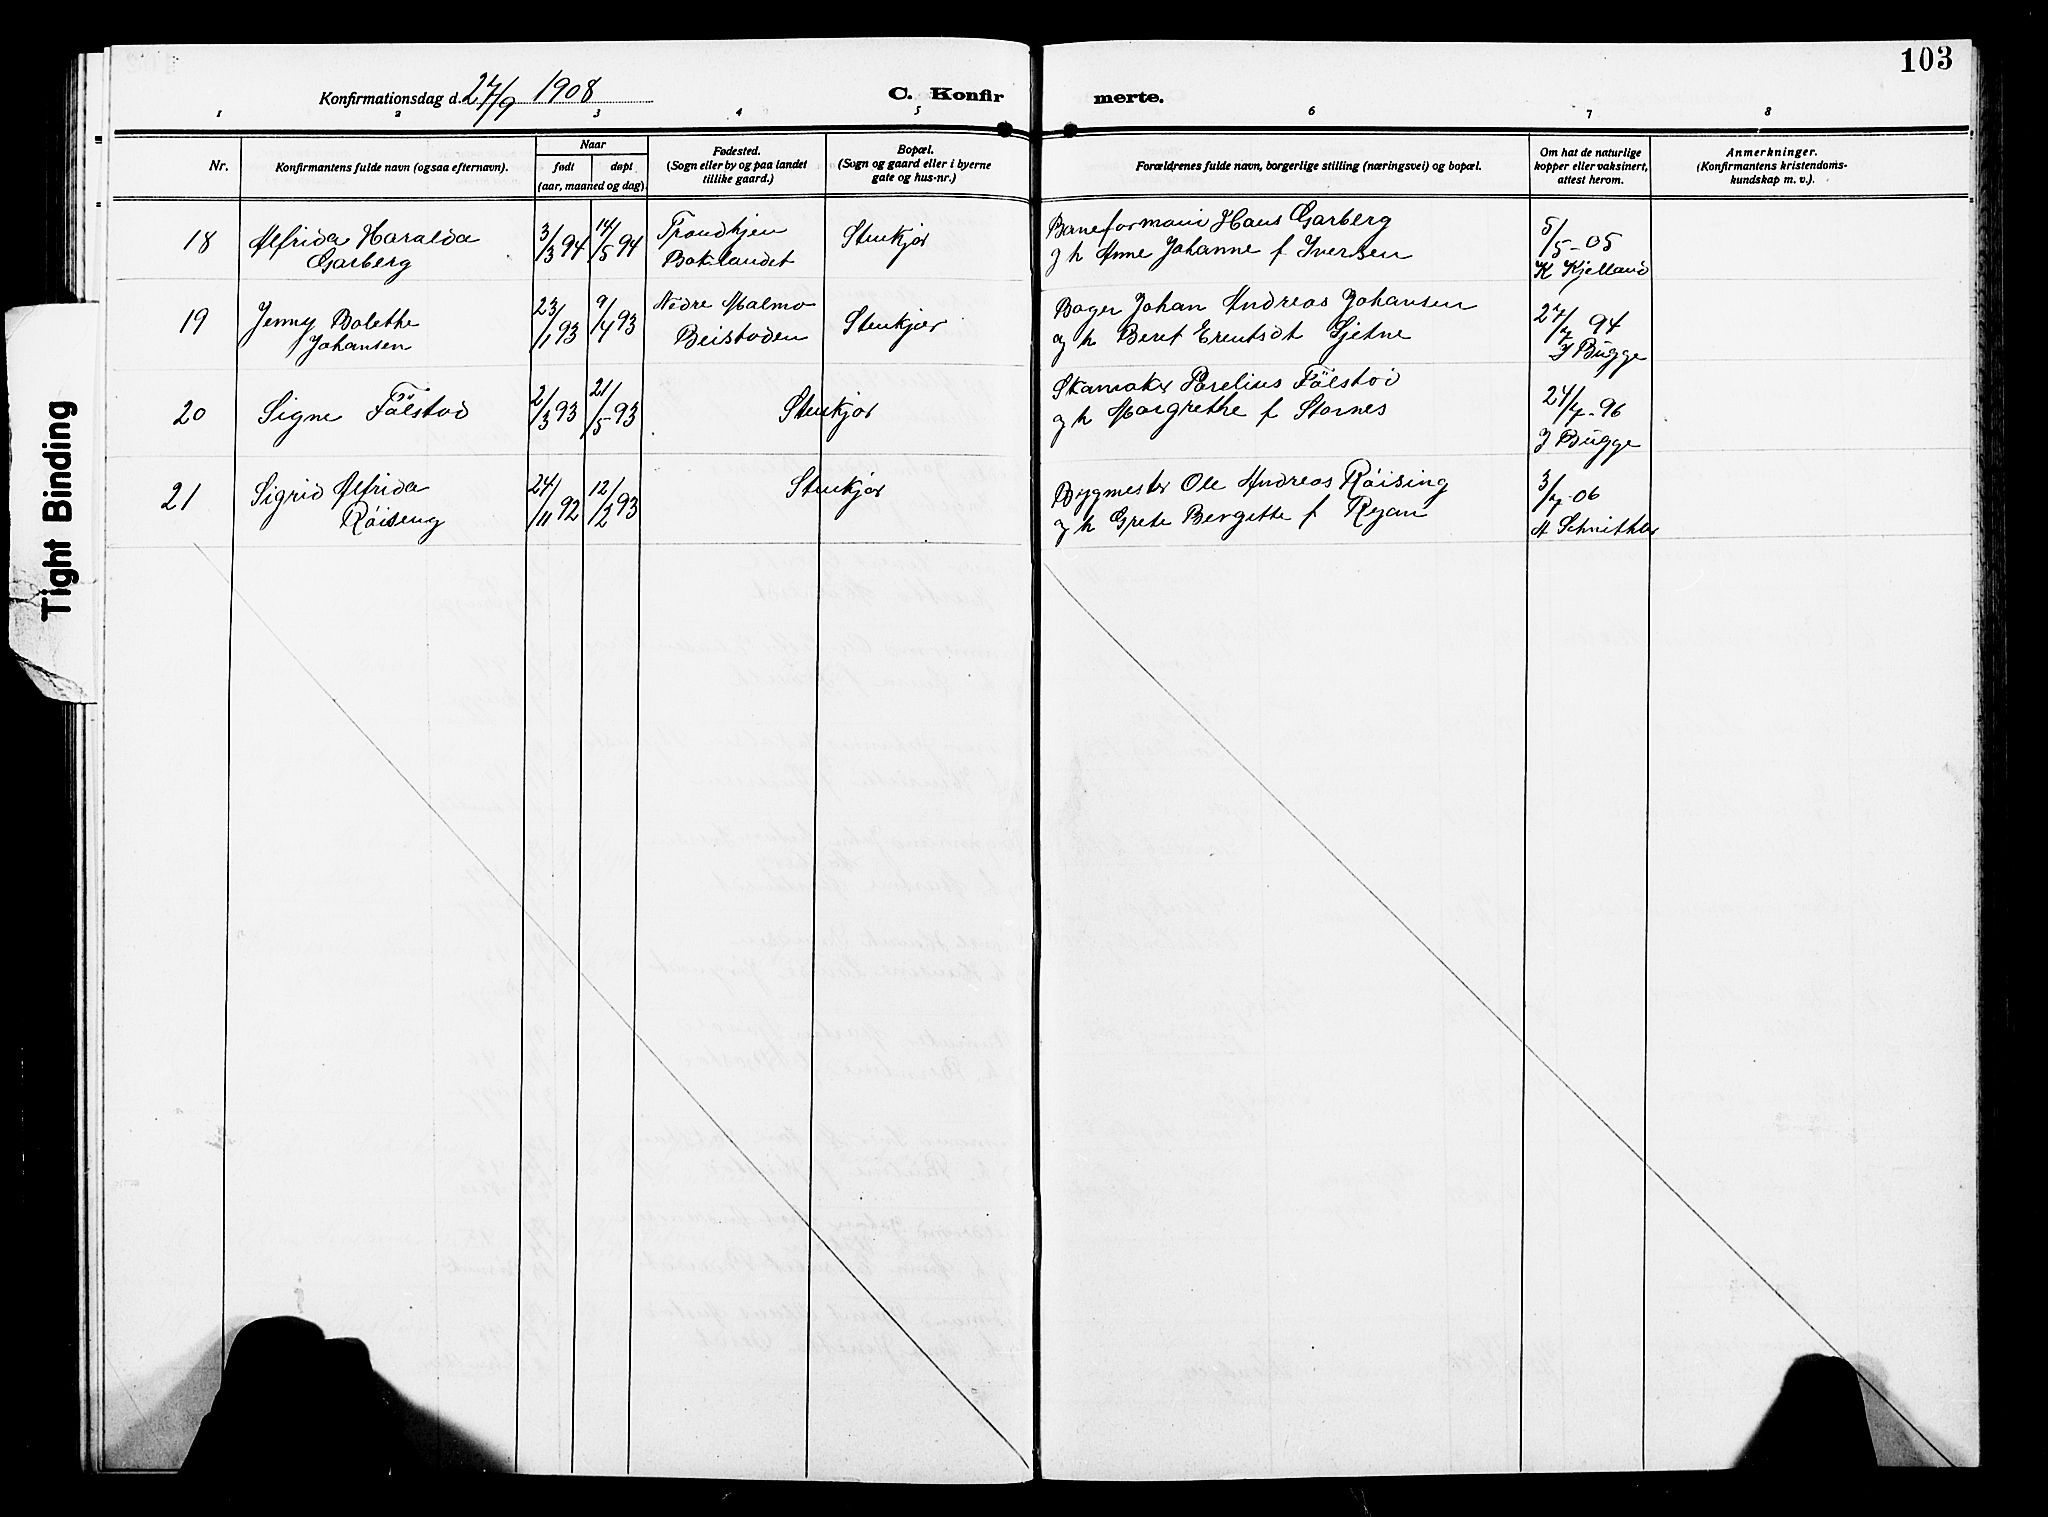 103
Konfirmationsdag d. 27/9 1908
C. Konfirmerte.
1 2 3 4 5 6 7 8
Nr.
Konfirmantens fulde navn (ogsaa efternavn).
Naar
født døpt
(aar, maaned og dag).
Fødested.
(Sogn eller by og paa landet
tillike gaard.)
Bopæl.
(Sogn og gaard eller i byerne
gate og hus-nr.)
Forældrenes fulde navn, borgerlige stilling (næringsvei) og bopæl.
Om hat de naturlige
kopper eller vaksinert,
attest herom.
Anmerkninger.
(Konfirmantens kristendoms-
kundskap m. v.).
18 Alfrida Haralda
Garberg
3/3 94 14/5 94
Trondhjem
Baklandet
Stenkjær
Baneformand Hans Garberg
og h Anne Johanne f Iversen
5/5-05
K Kjelland
19 Jenny Bolethe
Johansen
23/1 93 9/4 93
Nedre Malmo
Beistaden
Stenkjær
Bager Johan Andreas Johansen
og h Beret Erentsdt Gjetne
27/7 94
J Bugge
20 Signe Fölstad
2/3 93 21/5 93
Stenkjær
Skomaker Parelius Fölstad
og h Margrethe f Stornes
24/7-96
J Bugge
21 Sigrid Alfrida
Röising
24/11 92 12/2 93
Stenkjær
Bygmester Ole Andreas Röising
og h Grete Bergitte f Ryan
3/7-06
A Schnitler
Tight Binding